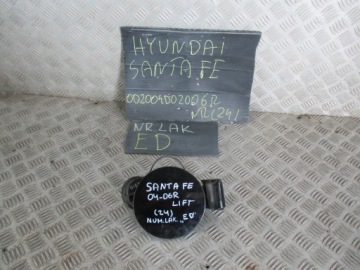 HYUNDAI
SANTA FE
00200400200GR
NR (24)
NR LAK
ED
SANTA FE
04-06R
LIFT
(24)
NUM.LAK. „ED"